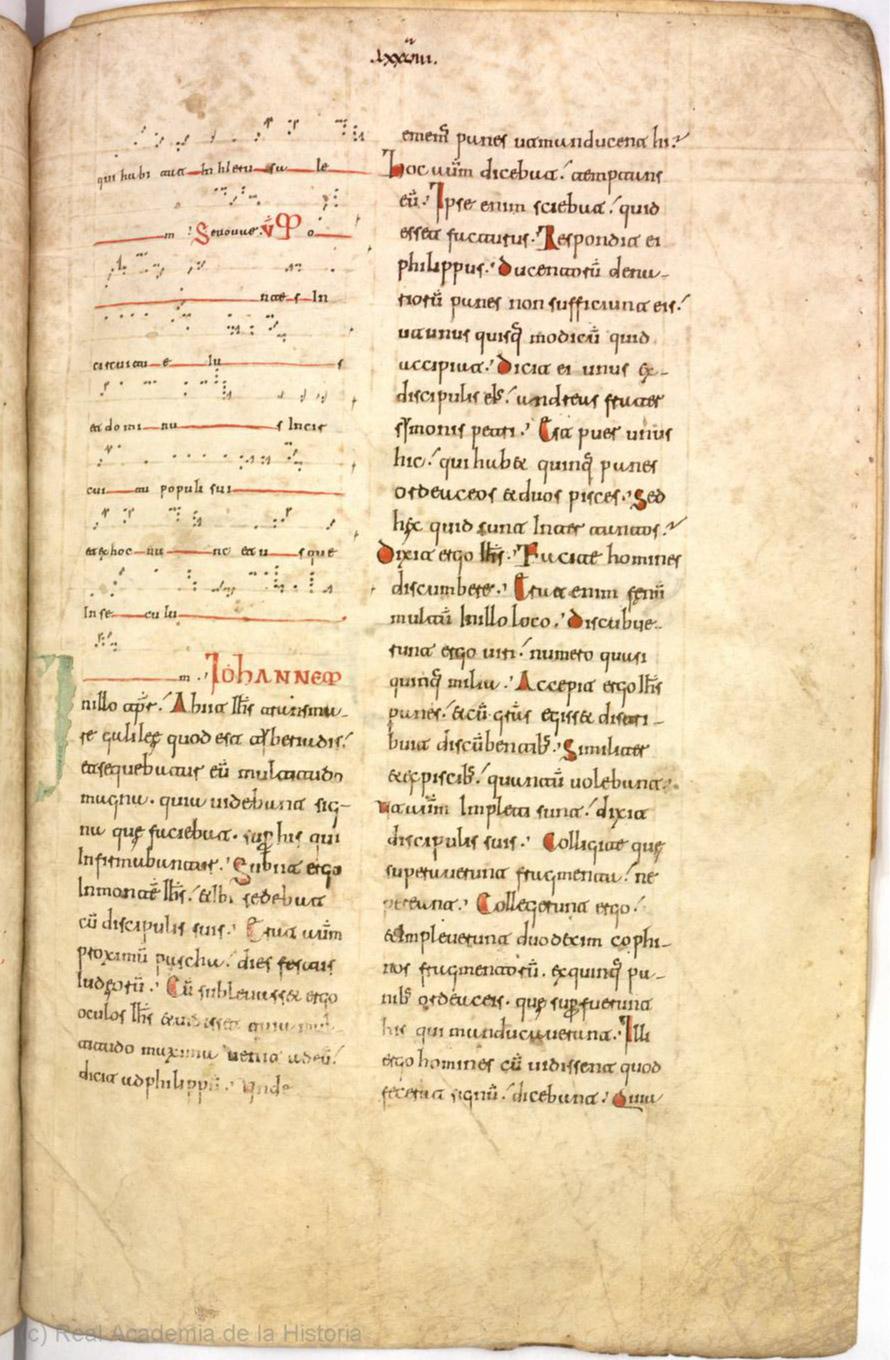 lxxxiiii.
qui habi tat In hIeru sa le
m Seuouae. V Mo
ntes In
circuitu e Iu s
et domi nu s Incir
cui tu populi sui
et exhoc nu nc et u sque
In se culu
m. IOHANNEM
In illo tempr. Abiit Ihs trans ma-
re galileę quod est tyberiadis.
et sequebatur eū multitudo
magna. quia uidebant sig-
na quę faciebat. sup his qui
Infirmabantur. Subiit ergo
In montē Ihs. et Ibi sedebat
cū discipulis suis. Erat aūm
proximū pascha. dies festus
Iudęorū. Cū subleuasset ergo
oculos Ihs et uidisset quia mul-
titudo maxima uenit ad eū.
dicit ad philippū. Unde
ememus panes ut manducent hi.
hoc aūm dicebat. temptans
eū. Ipse enim sciebat. quid
esset facturus. Respondit ei
philippus. ducentorū dena-
riorū panes non sufficiunt eis.
ut unus quisq modicū quid
accipiat. dicit ei unus ex
discipulis eIs. andreas frater
symonis petri. Est puer unus
hic. qui habet quinq panes
ordeaceos et duos pisces. Sed
hęc quid sunt Inter tantos.
Dixit ergo Ihs. Facite homines
discumbere. Erat enim fenū
multū In illo loco. discubue-
runt ergo uiri. numero quasi
quinq milia. Accepit ergo Ihs
panes. et cū grās egisset distri-
buit discūbentib. Similiter
et ex piscib. quantū uolebant.
ut aūm Impleti sunt. dixit
discipulis suis. Colligite quę
superauerunt fragmenta. ne
pereant. Collegerunt ergo.
et Impleuerunt duodecim cophi-
nos fragmentorū. ex quinq pa-
nib ordeaceis. quę supfuerunt
his qui manducauerunt. Illi
ergo homines cū uidissent quod
fecerat signū. dicebant. Quia
(c) Real Academia de la Historia